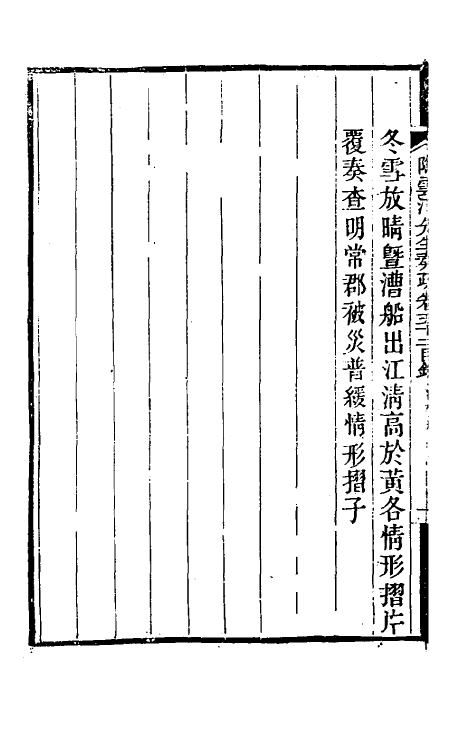 冬雪放晴暨漕船出江清高於黃各情形摺片
覆奏查明常郡被災普緩情形摺子